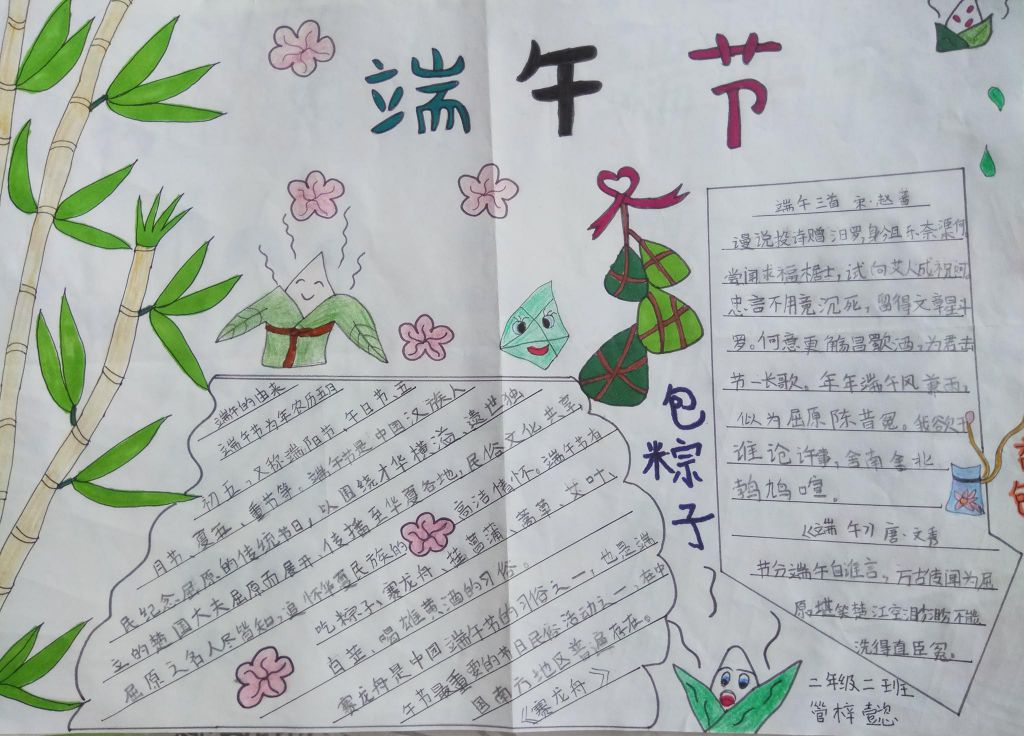 端午节
端午的由来
端午节为年农历五月
初五，又称端阳节，午日节、五
月节、夏五、重节等，端午节是中国汉族人
民纪念屈原的传统节日，以围绕才华横溢、遗世独
立的楚国大夫屈原而展开，传播至华夏各地，民俗文化共享，
屈原之名人尽皆知，追怀华夏民族的高洁情怀。端午节有
吃粽子，赛龙舟，挂菖蒲、蒿草、艾叶，
白芷，喝雄黄酒的习俗。
赛龙舟是中国端午节的习俗之一，也是端
午节最重要的节日民俗活动之一，在中
国南方地区普遍存在。
《赛龙舟》
包粽子
端午三首 宋·赵蕃
谩说投诗赠汨罗，身沮乐奈渠何
尝闻求福木居士，试向艾人成祝呵
忠言不用竟沉死，留得文章星斗
罗。何意更觞昌歜酒，为君击
节一长歌。年年端午风兼雨，
似为屈原陈昔冤。我欲于
谁论许事，舍南舍北
鹁鸠喧。
《端午》唐·文秀
节分端午自谁言，万古传闻为屈
原。堪笑楚江空渺渺不能
洗得直臣冤。
二年级二班
管梓懿